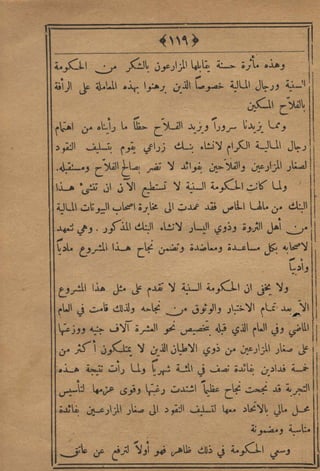 ﴿ ١١٩ ﴾
وهذه مأثرة حسنة يقابلها المزارعون بالشكر من الحكومة
السنية ورجال المالية خصوصاً الذين برهنوا بهذه المعاملة على الرأفة
بالفلاح المسكين
ومما يزيدنا سروراً ويزيد الفلاح حظاً ما رأيناه من اهتمام
رجال المالية الكرام لانشاء بنك زراعي يقوم بتسليف النقود
لصغار المزارعين والفلاحين بفوائد لا تضر بصالح الفلاح ومستقبله.
ولما كانت الحكومة السنية لا تستطيع الآن ان تنشئ هذا
البنك من مالها الخاص فقد عمدت الى مخابرة اصحاب البيوتات المالية
من أهل الثروة وذوي اليسار لانشاء البنك المذكور. وهي تتعهد
لاصحابه بكل مساعدة ومعاضدة وتضمن نجاح هذا المشروع مادياً
وأدبياً
ولا يخفى ان الحكومة السنية لا تقدم على مثل هذا المشروع
الا بعد تمام الاختبار والوثوق من نجاحه ولذلك قامت في العام
الماضي وفي العام الذي قبله بتخصيص نحو العشرة آلاف جنيه ووزعتها
على صغار المزارعين من ذوي الاطيان الذين لا يمتلكون أكثر من
خمسة فدادين بفائدة نصف في المئة شهرياً ولما رأت نتيجة هذه
التجربة قد نجحت نجاح عظيماً اشتدت رغبتها وقوى عزمها لتأسيس
محل مالي بالاتحاد معها لتسليف النقود الى صغار المزارعين بفائدة
مناسبة ومضمونة
وسعي الحكومة في ذلك ظاهر فهو أولاً لترفع عن عاتق